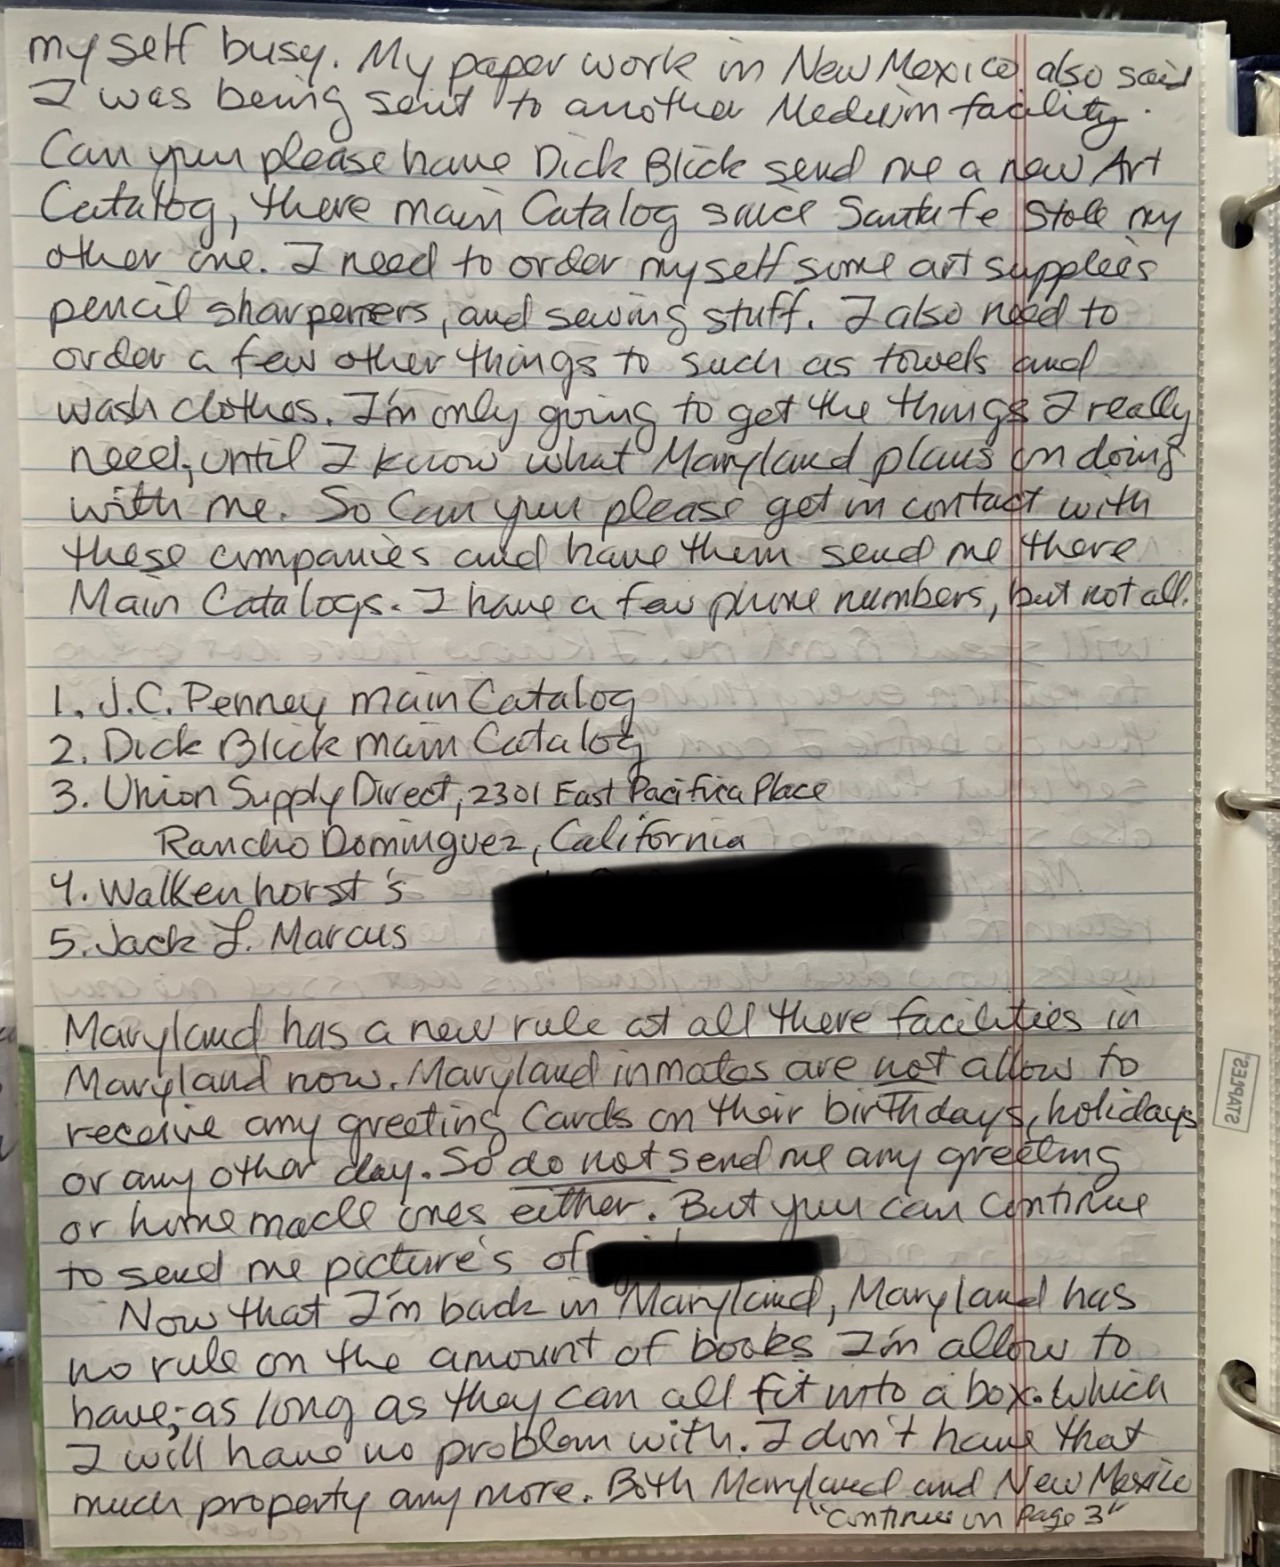 my self busy. My paper work in New Mexico also said
I was being sent to another Medium facility.
Can you please have Dick Blick send me a new Art
Catalog, there main Catalog since Santa fe Stole my
other one. I need to order myself some art supplees
pencil sharpeners, and sewing stuff. I also need to
order a few other things to such as towels and
wash clothes. I'm only going to get the things I really
need, until I know what Maryland plans on doing
with me. So Can you please get in contact with
these companies and have them send me there
Main Catalogs. I have a few phone numbers, but not all.
1. J.C. Penney main Catalog
2. Dick Blick main Catalog
3. Union Supply Direct, 2301 East Pacifica Place
Rancho Dominguez, California
4. Walkenhorst's
5. Jack L. Marcus
Maryland has a new rule at all there facilities in
Maryland now. Maryland inmates are not allow to
receive any greeting Cards on their birthdays, holidays
or any other day. So do not send me any greeting
or home made ones either. But you can continue
to send me picture's of
Now that I'm back in Maryland, Maryland has
no rule on the amount of books I'm allow to
have, as long as they can all fit into a box. Which
I will have no problem with. I don't have that
much property any more. Both Maryland and New Mexico
"Continues on Page 3"
STAPLES